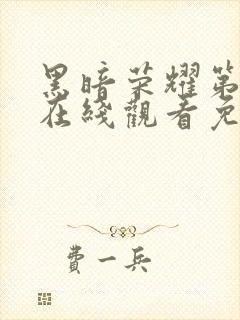 黑暗荣耀第
在线觀看免
費一兵